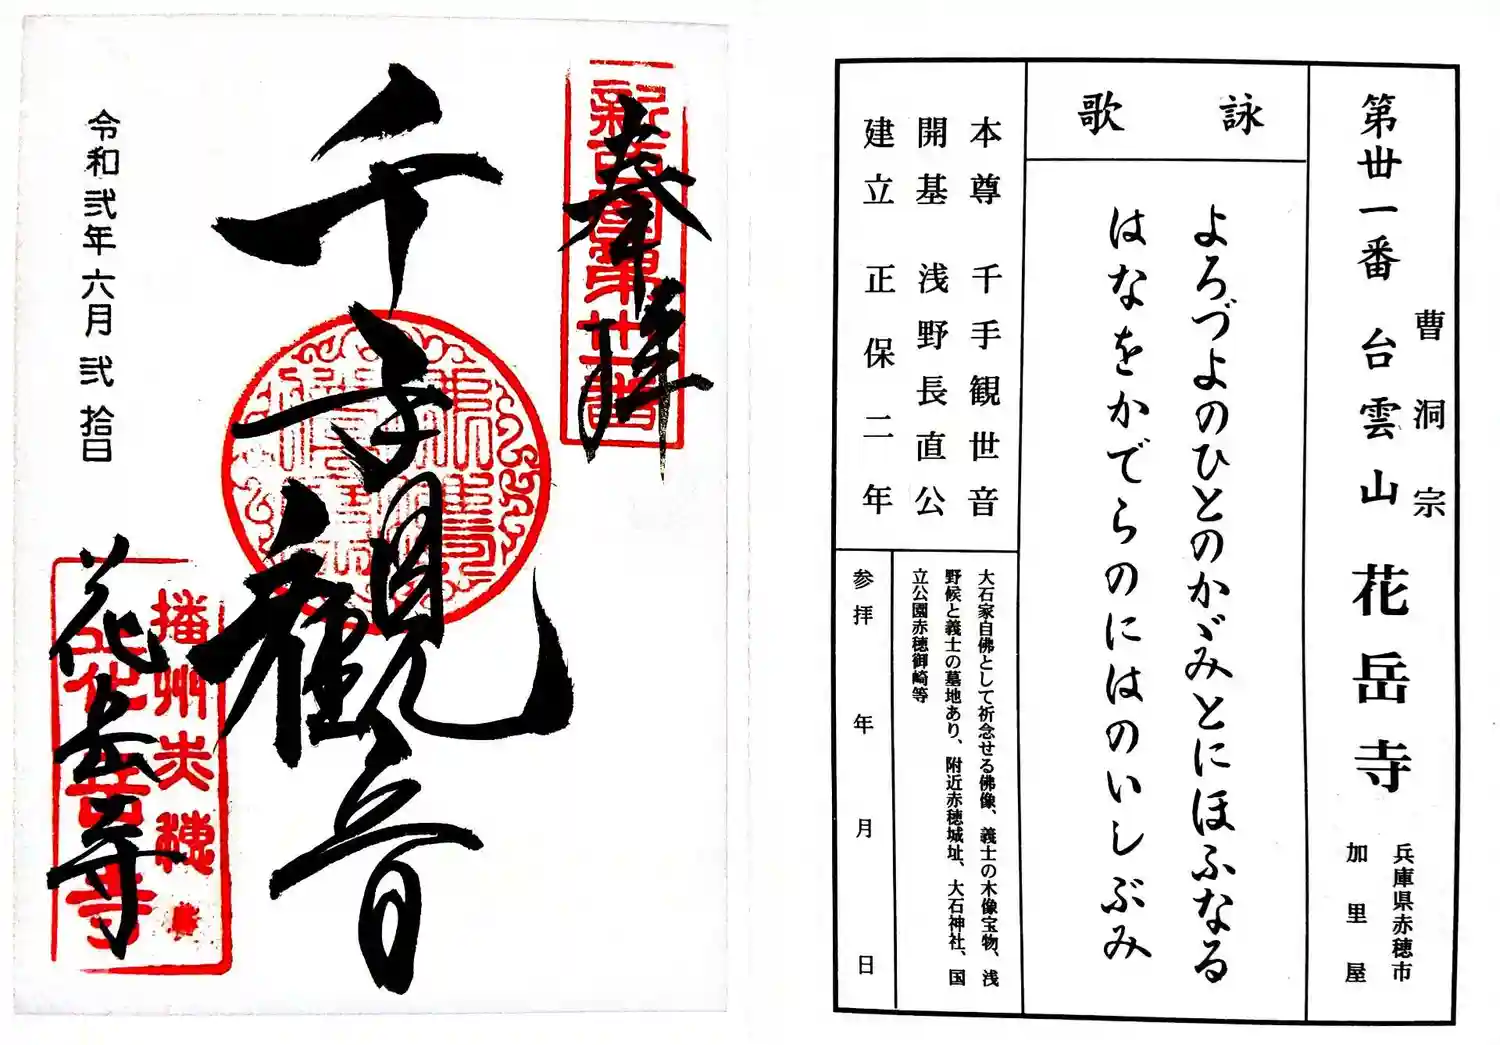 奉拝
新西国第卅一番
千手観音
令和弐年六月弐拾日
花岳寺
播州赤穂
第卅一番 台雲山 花岳寺
曹洞宗
兵庫県赤穂市
加里屋
詠歌
よろづよのひとのかゞみとにほふなる
はなをかでらのにはのいしぶみ
本尊 千手観世音
開基 浅野長直公
建立 正保二年
大石家自佛として祈念せる佛像、義士の木像宝物、浅
野候と義士の墓地あり、附近赤穂城址、大石神社、国
立公園赤穂御崎等
参拝 年 月 日